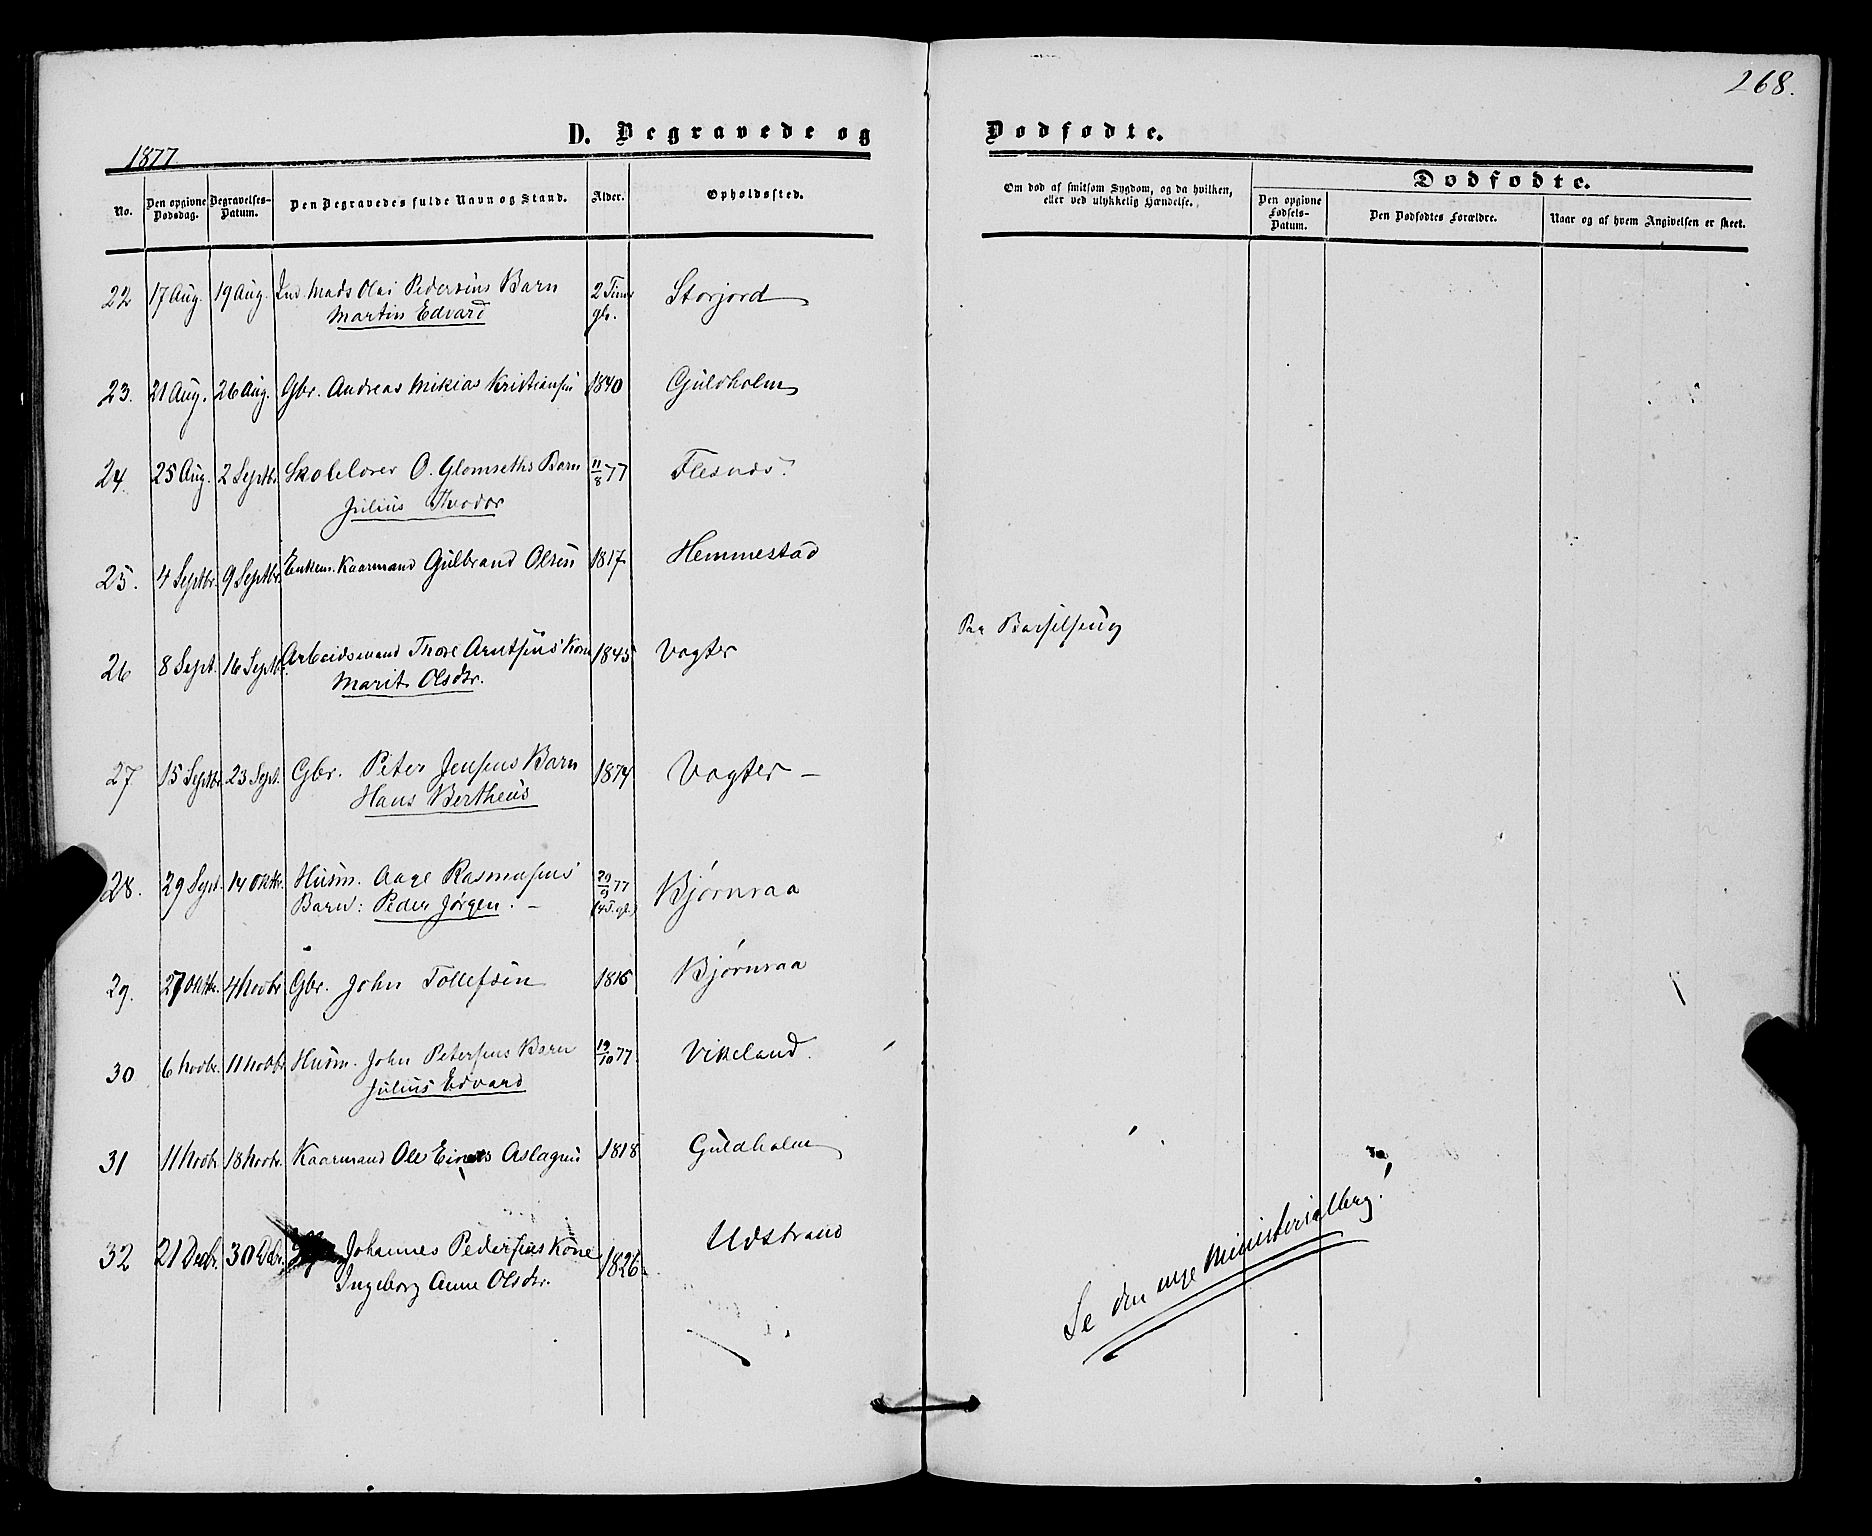 268.
1877
D. Begravede og Dødfødte.
No. Den opgivne Dødsdag. Begravelses-Datum. Den Begravedes fulde Navn og Stand. Alder. Opholdssted. Om død af smitsom Sygdom, og da hvilken, eller ved ulykkelig Hændelse. Dødfødte. Den opgivne Fødsels-Datum. Den Dødfødtes Forældre. Naar og af hvem Angivelsen er skeet.
22 17 Aug. 19 Aug. Ind. Mads Olai Pedersens Barn 2 Timer Storjord
Martin Edvard gl.
23. 21 Aug. 26 Aug. Gbr. Andreas Mikias Kristiansen 1840 Guldholm
24. 25 Aug. 2 Septbr. Skolelærer O. Glomseths Barn 11/8 77 Flesnæs.
Julius Theodor
25. 4 Septbr. 9 Septbr. Enkem. Kaarmand Gulbrand Olsen 1817 Hemmestad
26 8 Sept. 16 Septbr. Arbeidsmand Thore Arntsens Kone 1845 Vogter Paa Barselseng
Marit Olsdtr.
27 15 Septbr. 23 Sept. Gbr. Peter Jensens Barn 1874 Vogter –
Hans Bertheus
28. 29 Sept. 14 Oktbr. Husm. Aage Rasmusens 29/9 77 Bjørnraa
Barn: Peder Jørgen. –
29. 27 Oktbr. 4 Novbr. Gbr. John Tollefsen 1816 Bjørnraa
30 6 Novbr. 11 Novbr. Husm. John Petersens Barn 19/10 77 Vikeland.
Julius Edvard
31 11 Novbr. 18 Novbr. Kaarmand Ole Aslagsen 1818 Guldholm
32 21 Decbr. 30 Dcbr. Johannes Pedersens Kone 1826 Udstrand
Ingeborg Anne Olsdtr.
Se den nye Ministerialbog!